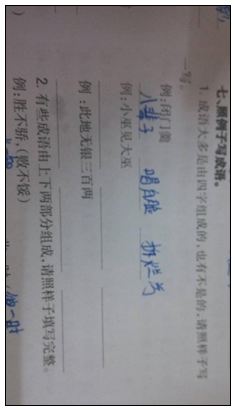 七、照例子写成语。
1. 成语大多是由四字组成的,也有不是的,请照样子写
一写。
例:闭门羹
八辈子 唱白脸 挑烂为
例:小巫见大巫
例:此地无银三百两
2. 有些成语由上下两部分组成,请照样子填写完整。
例:胜不骄,(败不馁)